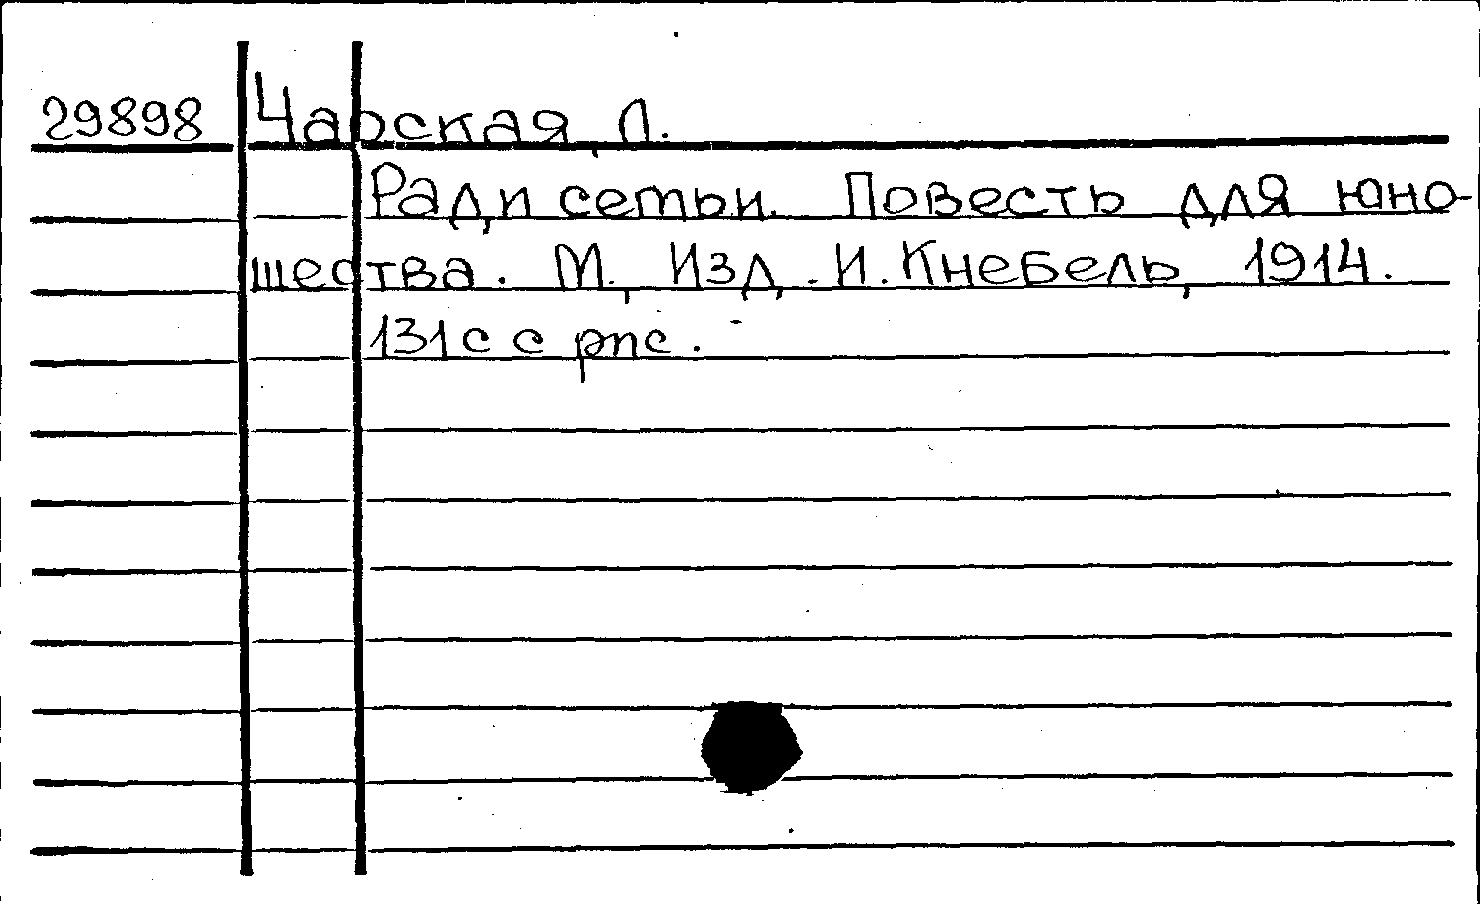 29898 Чарская, Л.
Ради семьи. Повесть для юно-
шества. М., Изд. И. Кнебель, 1914.
131 с с рис.